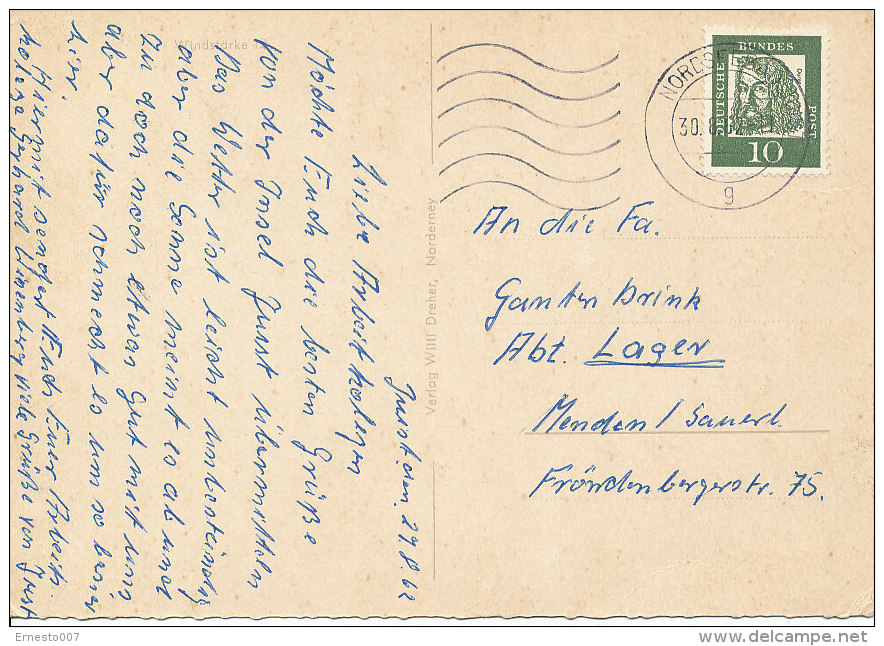 Windstärke
Juist den. 29.8.62
Liebe Arbeitskolegen
Möchte Euch die besten Grüße
von der Insel Juist übermitteln
Das Wetter ist leicht unbeständig
aber die Sonne meint es ab und
zu doch noch etwas Gut mit uns
aber dafür schmeckt es um so beser
hier.
Hiermit sendet Euch Euer Arbeits-
kolege Gerhard viele Grüße von Juist
Verlag Willi Dreher, Norderney
DEUTSCHE BUNDES POST
10
NORDSEE
30.8.62
g
An die Fa.
Ganten Brink
Abt. Lager
Menden / Sauerl.
Fröndenbergerstr. 75.
Ernesto007
delcampe.net